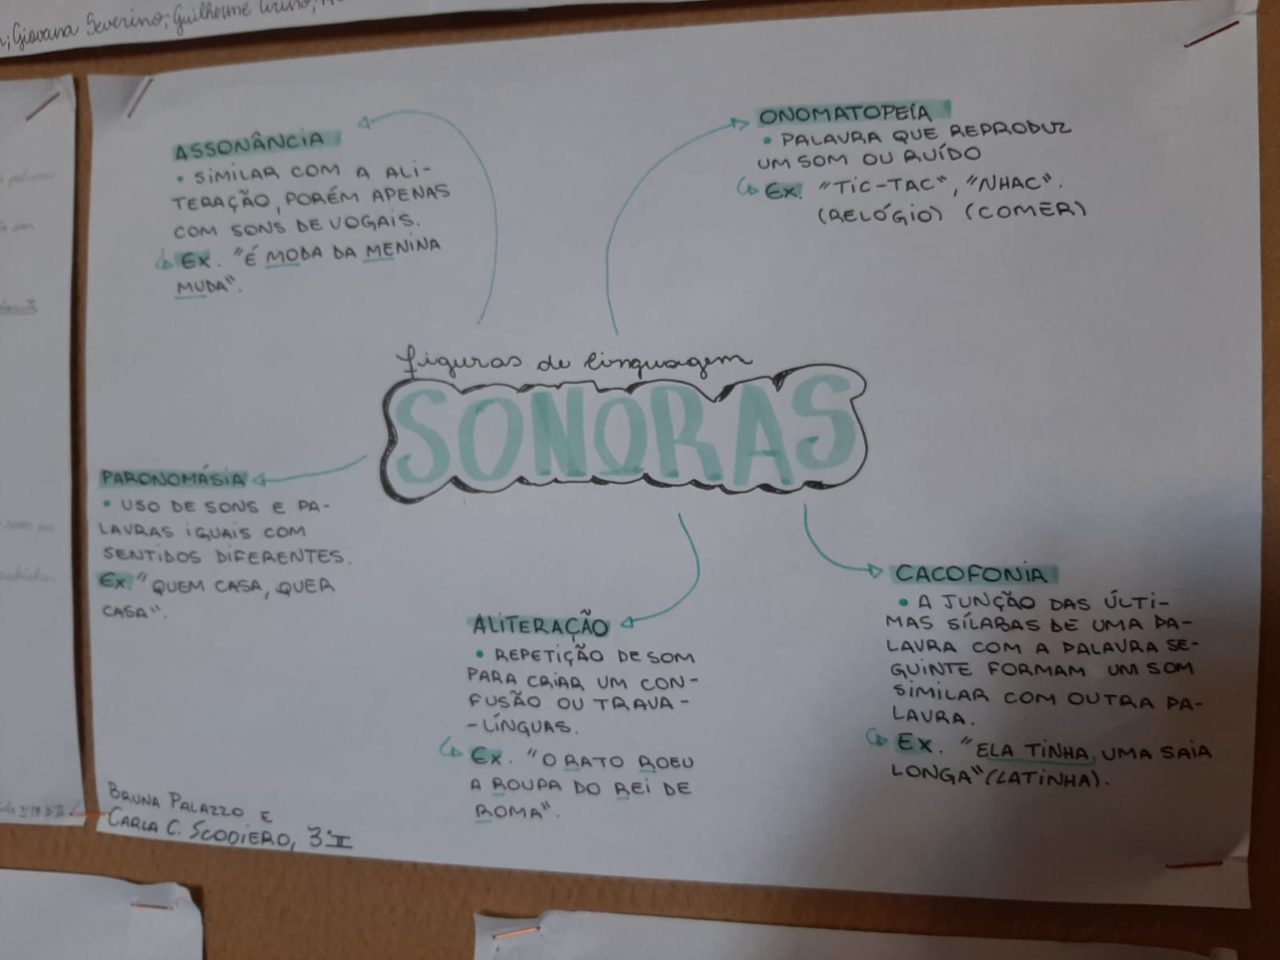 Giovana Severino; Guilherme
ASSONÂNCIA
• SIMILAR COM A ALI-
TERAÇÃO, PORÉM APENAS
COM SONS DE VOGAIS.
Ex. "É MODA DA MENINA
MUDA".
ONOMATOPEIA
• PALAVRA QUE REPRODUZ
UM SOM OU RUÍDO
Ex. "TIC-TAC", "NHAC".
(RELÓGIO) (COMER)
figuras de linguagem
SONORAS
PARONOMÁSIA
• USO DE SONS E PA-
LAVRAS IGUAIS COM
SENTIDOS DIFERENTES.
Ex. "QUEM CASA, QUER
CASA".
ALITERAÇÃO
• REPETIÇÃO DE SOM
PARA CRIAR UM CON-
FUSÃO OU TRAVA-
-LÍNGUAS.
Ex. "O RATO ROEU
A ROUPA DO REI DE
ROMA".
CACOFONIA
• A JUNÇÃO DAS ÚLTI-
MAS SÍLABAS DE UMA PA-
LAVRA COM A PALAVRA SE-
GUINTE FORMAM UM SOM
SIMILAR COM OUTRA PA-
LAVRA.
Ex. "ELA TINHA UMA SAIA
LONGA" (LATINHA).
BRUNA PALAZZO E
CARLA C. SCODIERO, 3°I